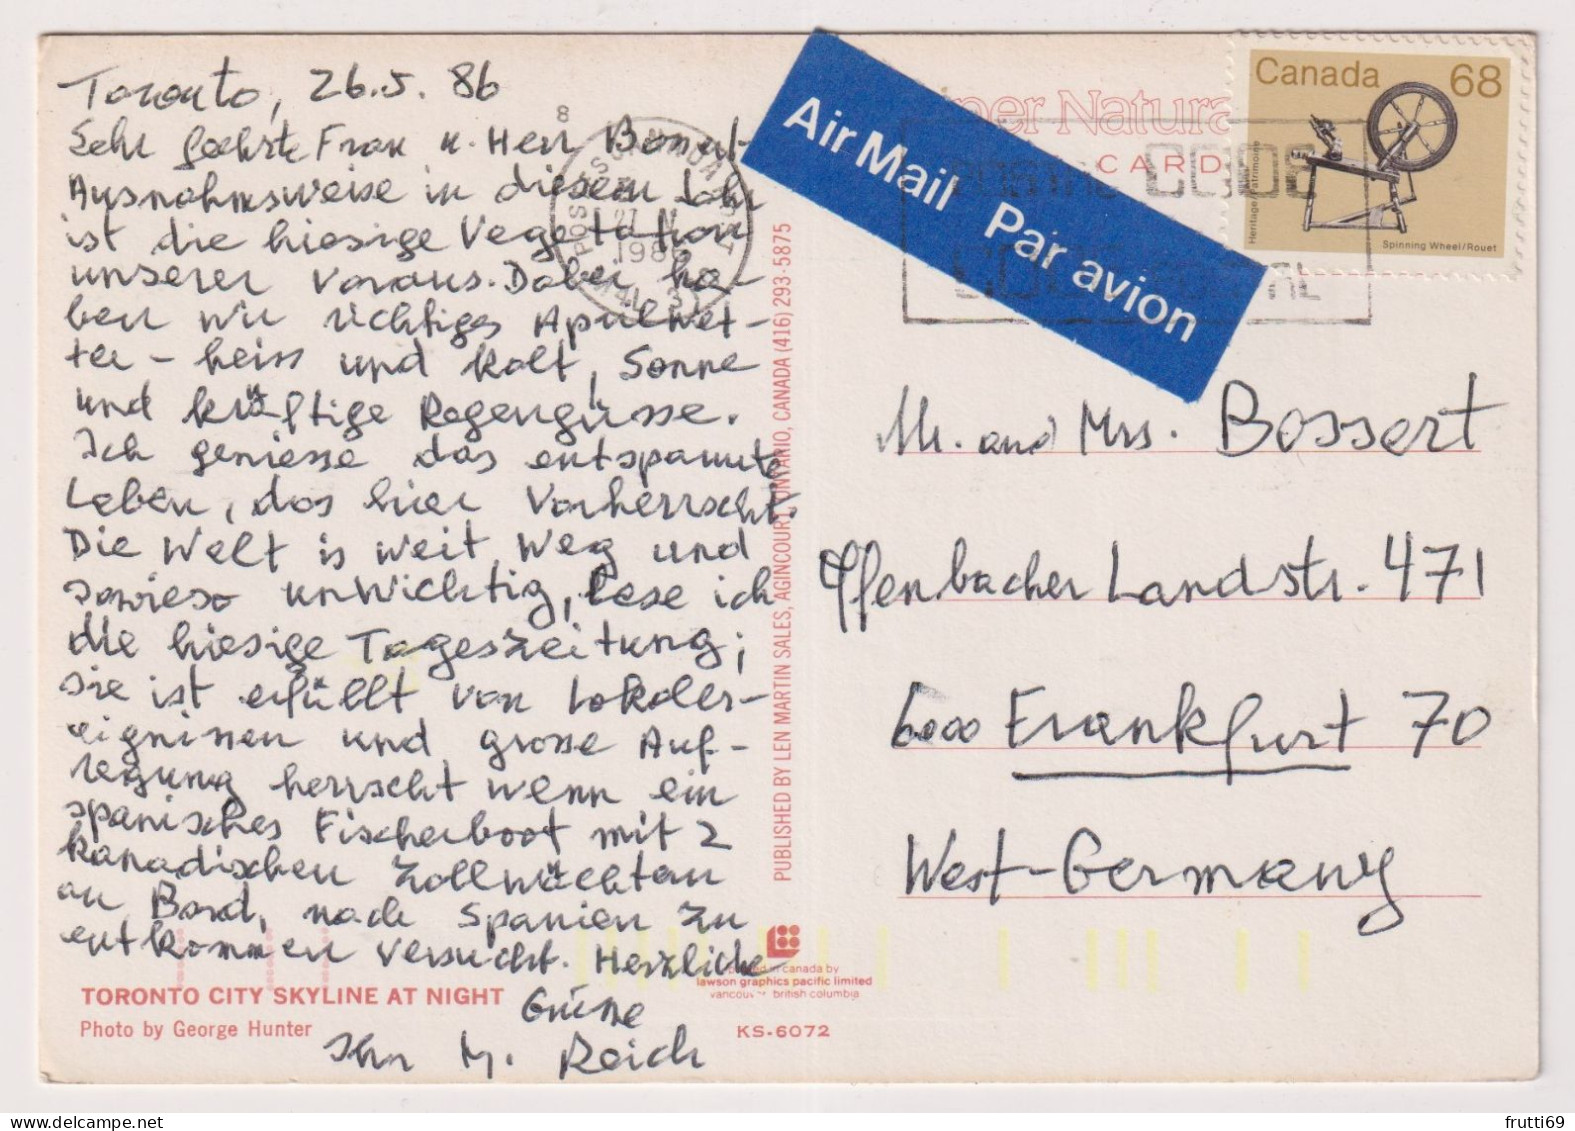 Toronto, 26.5. 86
Sehr geehrte Frau u. Herr Bossert
Ausnahmsweise in diesem Jahr
ist die hiesige Vegetation
unserer voraus. Dabei ha-
ben wir richtiges Aprilwet-
ter - heiss und kalt, Sonne
und kräftige Regengüsse.
Ich geniesse das entspannte
Leben, das hier vorherrscht.
Die Welt is weit weg und
sowieso unwichtig, lese ich
die hiesige Tageszeitung;
sie ist erfüllt von Lokaler-
eignissen und grosse Auf-
regung herrscht wenn ein
spanisches Fischerboot mit 2
kanadischen Zollwächtern
an Bord, nach Spanien zu
entkommen versucht. Herzliche
Grüsse
Ihr M. Reich
TORONTO CITY SKYLINE AT NIGHT
Photo by George Hunter
PUBLISHED BY LEN MARTIN SALES, AGINCOURT, ONTARIO, CANADA (416) 293-5875
printed in canada by
lawson graphics pacific limited
vancouver british columbia
KS-6072
Air Mail Par avion
Super Natural
CARD
POSTAL CODE
CODE POSTAL
27
1986
Canada 68
Heritage/Patrimoine
Spinning Wheel/Rouet
Mr. and Mrs. Bossert
Offenbacher Landstr. 471
6000 Frankfurt 70
West-Germany
frutti69